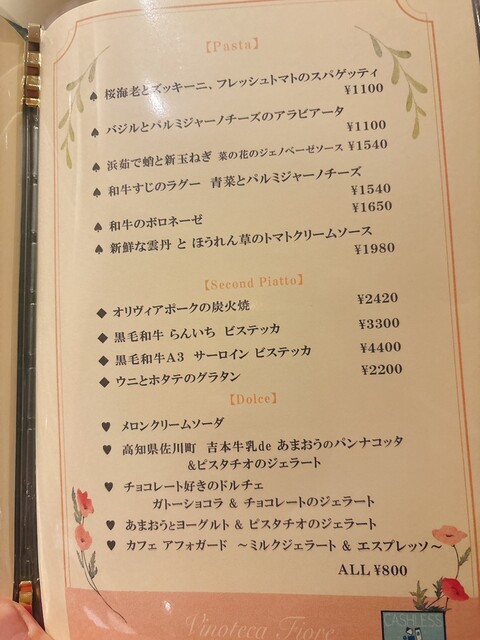 【Pasta】
♠ 桜海老とズッキーニ、フレッシュトマトのスパゲッティ
¥1100
♠ バジルとパルミジャーノチーズのアラビアータ
¥1100
♠ 浜茹で蛸と新玉ねぎ 菜の花のジェノベーゼソース ¥1540
♠ 和牛すじのラグー 青菜とパルミジャーノチーズ
¥1540
♠ 和牛のボロネーゼ ¥1650
♠ 新鮮な雲丹 と ほうれん草のトマトクリームソース
¥1980
【Second Piatto】
◆ オリヴィアポークの炭火焼 ¥2420
◆ 黒毛和牛 らんいち ビステッカ ¥3300
◆ 黒毛和牛A3 サーロイン ビステッカ ¥4400
◆ ウニとホタテのグラタン ¥2200
【Dolce】
♥ メロンクリームソーダ
♥ 高知県佐川町 吉本牛乳de あまおうのパンナコッタ
&ピスタチオのジェラート
♥ チョコレート好きのドルチェ
ガトーショコラ & チョコレートのジェラート
♥ あまおうとヨーグルト & ピスタチオのジェラート
♥ カフェ アフォガード ～ミルクジェラート & エスプレッソ～
ALL ¥800
Vinoteca Fiore
CASHLESS